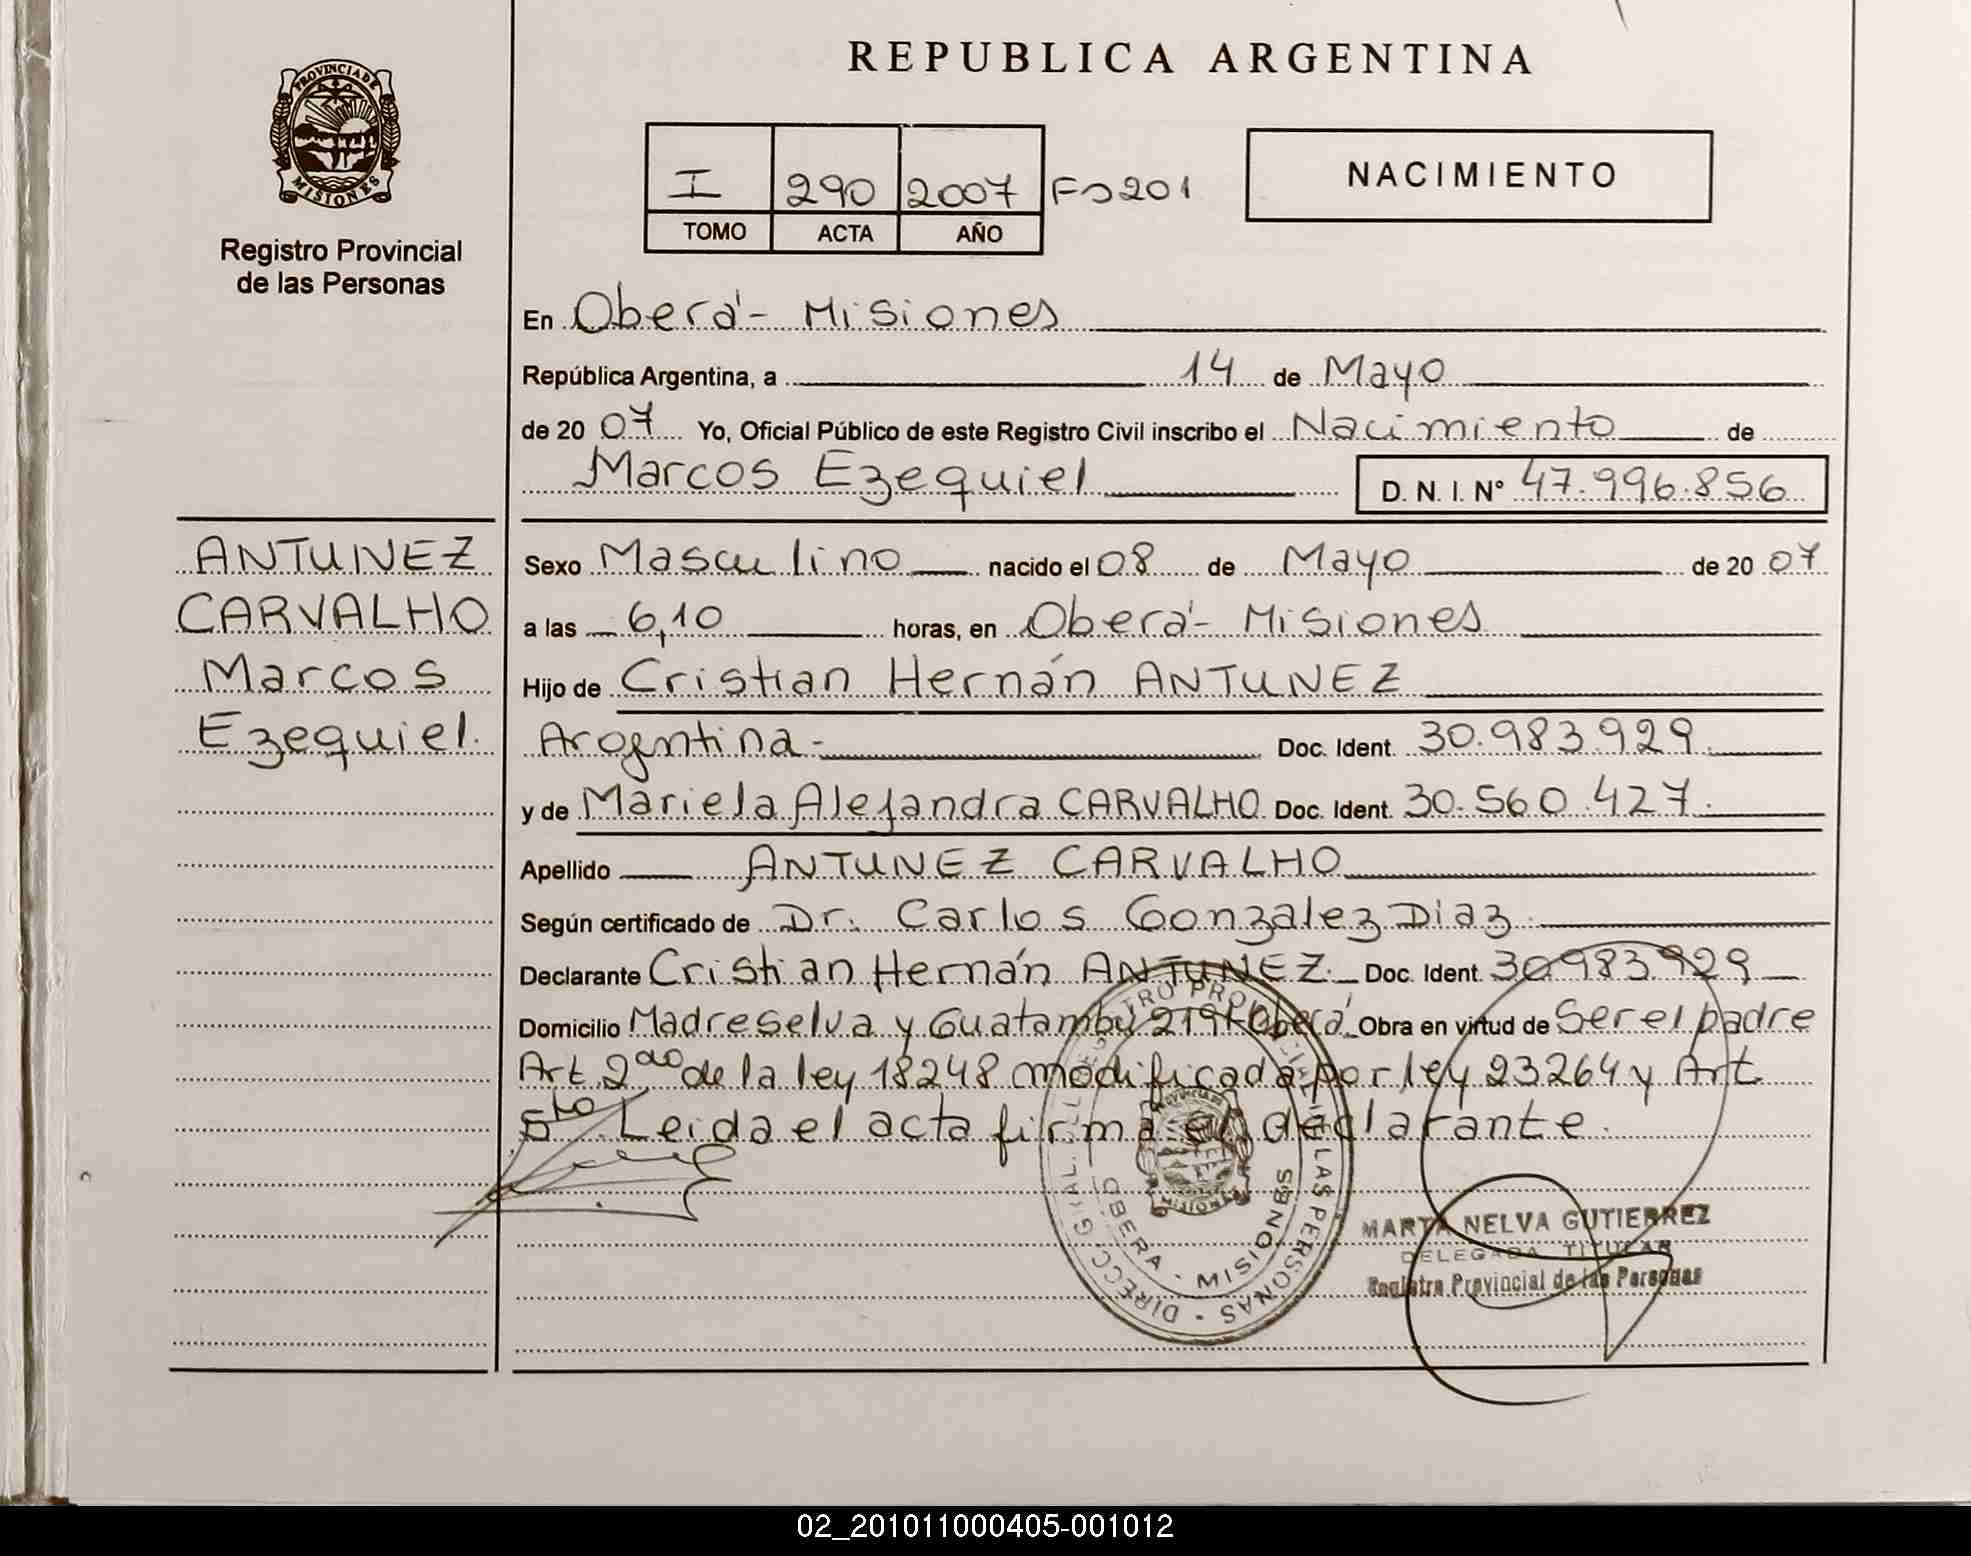 REPUBLICA ARGENTINA
PROVINCIA DE
MISIONES
Registro Provincial
de las Personas
I 290 2007 Fo 201
TOMO ACTA AÑO
NACIMIENTO
En Oberá - Misiones
República Argentina, a 14 de Mayo
de 2007 Yo, Oficial Público de este Registro Civil inscribo el Nacimiento de
Marcos Ezequiel D. N. I. Nº 47.996.856
ANTUNEZ
CARVALHO
Marcos
Ezequiel.
Sexo Masculino nacido el 08 de Mayo de 2007
a las 6,10 horas, en Oberá - Misiones
Hijo de Cristian Hernán ANTUNEZ
Argentina - Doc. Ident. 30.983.929.
y de Mariela Alejandra CARVALHO Doc. Ident. 30.560.427.
Apellido ANTUNEZ CARVALHO
Según certificado de Dr. Carlos Gonzalez Diaz.
Declarante Cristian Hernán ANTUNEZ. Doc. Ident. 30.983.929
Domicilio Madreselva y Guatambú 219 Oberá. Obra en virtud de Ser el padre
Art. 2do de la ley 18248 modificada por ley 23264 y Art.
5to. Leida el acta firma el declarante.
DIRECC. GRAL. DEL REGISTRO PROVINCIAL DE LAS PERSONAS
OBERA - MISIONES
MARTA NELVA GUTIERREZ
DELEGADA TITULAR
Registro Provincial de las Personas
02_201011000405-001012